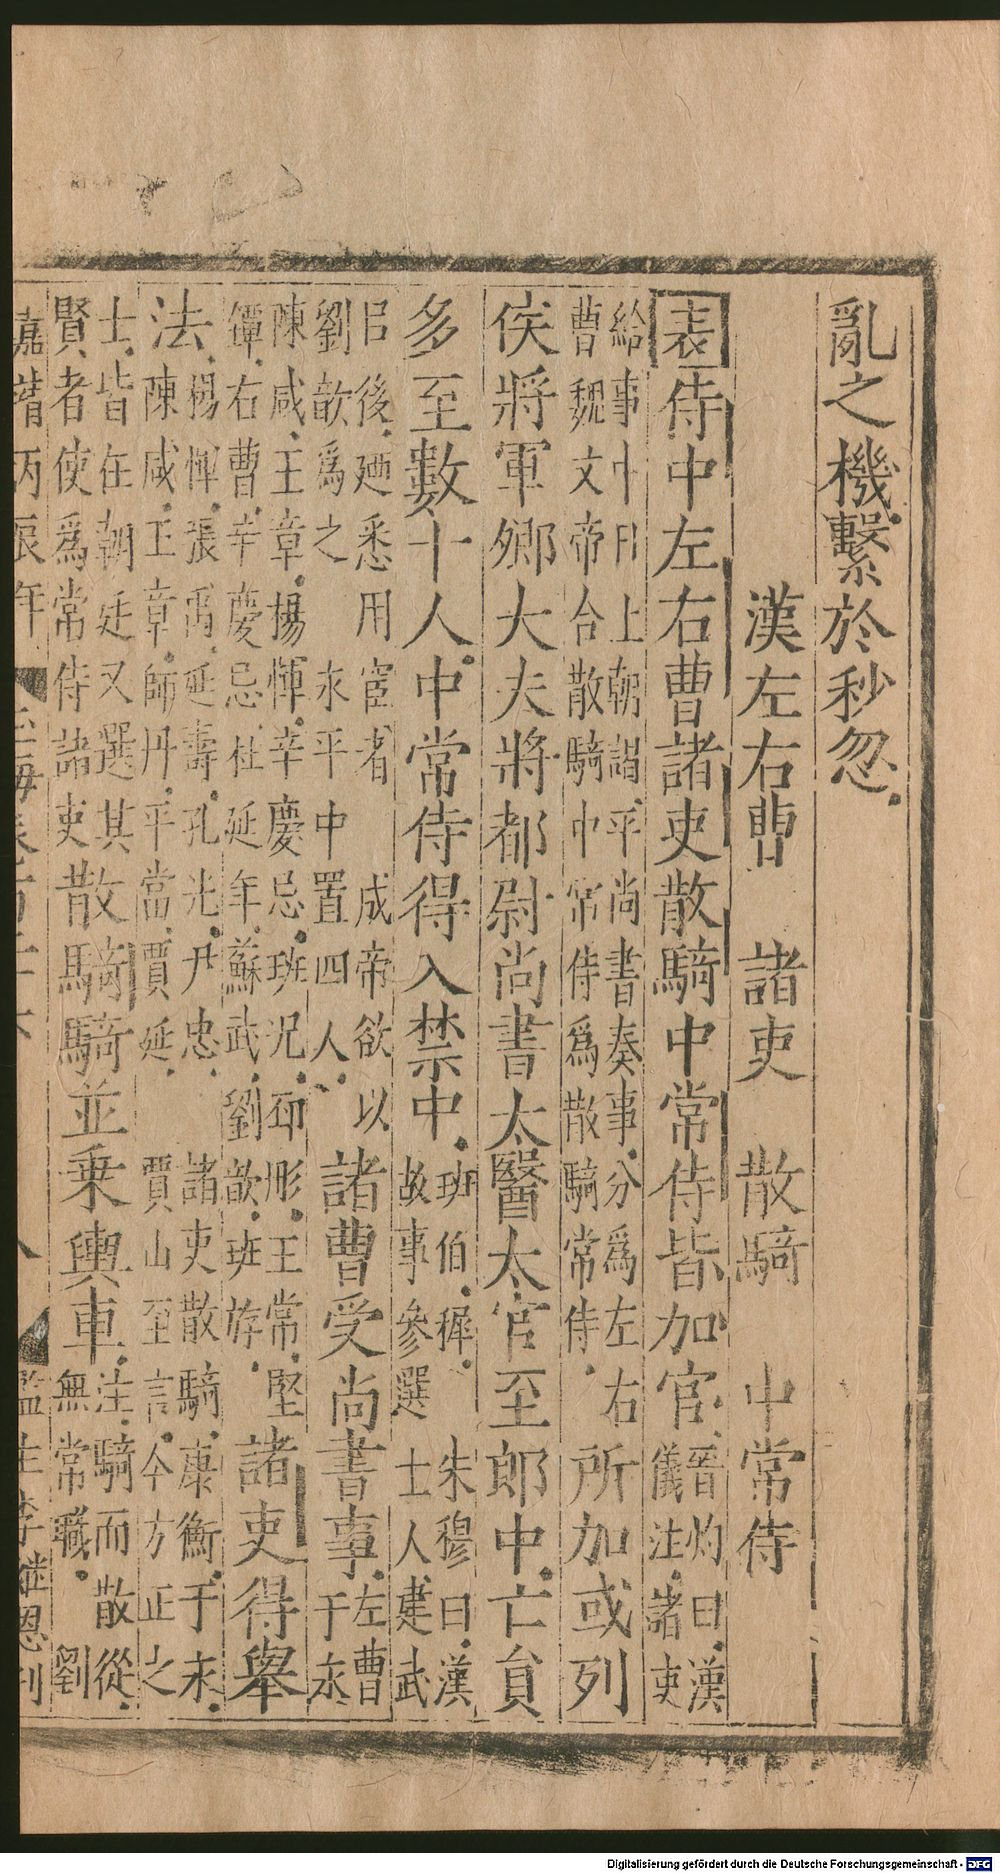 亂之機繫於秒忽
漢左右曹 諸吏 散騎 中常侍
表侍中左右曹諸吏散騎中常侍皆加官
晉灼曰漢
儀注諸吏
給事中日上朝謁平尚書奏事分爲左右
曹魏文帝合散騎中常侍爲散騎常侍
所加或列
侯將軍卿大夫將都尉尚書太醫太官至郎中亡員
多至數十人中常侍得入禁中
班伯穉 朱穆曰漢
故事參選士人建武
㠯後廼悉用宦者 成帝欲以
劉歆爲之 永平中置四人
諸曹受尚書事
左曹
于永
陳咸王章楊惲辛慶忌班況邳彤王常堅
鐔右曹辛慶忌杜延年蘇武劉歆班斿
諸吏得舉
法
楊惲張禹延壽孔光尹忠 諸吏散騎康衡于未
陳咸王章師丹平當賈延 賈山至言今方正之
士皆在朝廷又選其
賢者使爲常侍諸吏
散騎騎並乗輿車
注騎而散從
無常職 劉
嘉靖丙辰年 玉海卷 監生李 恩刊
Digitalisierung gefördert durch die Deutsche Forschungsgemeinschaft - DFG